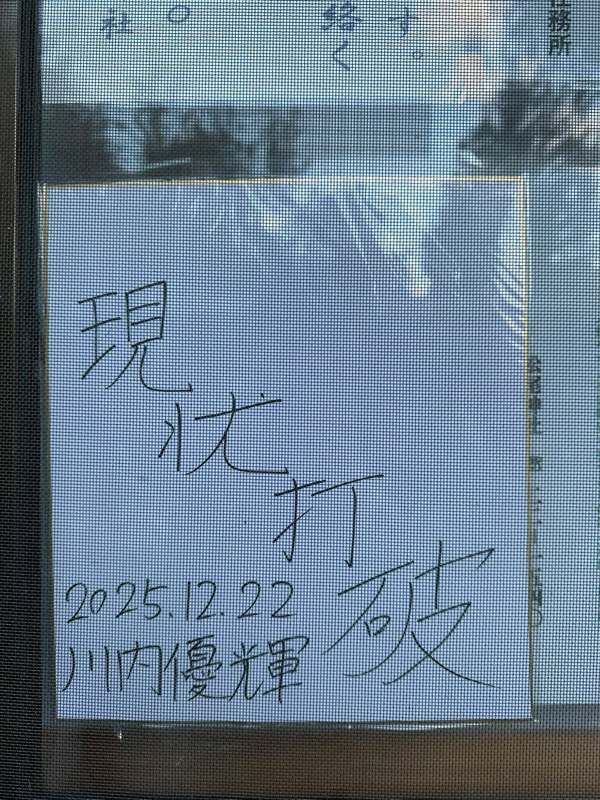 社〇
絡く
す。
任務所
現状打破
2025.12.22
川内優輝